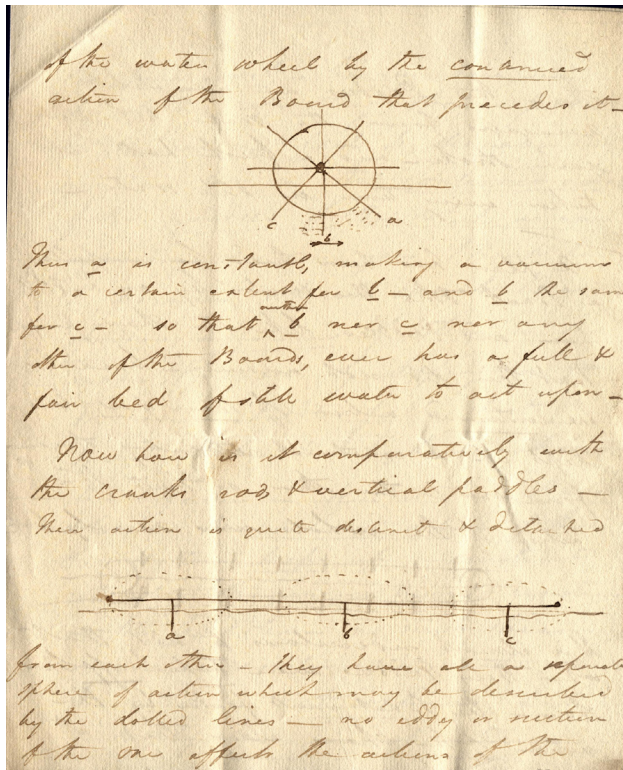 of the water wheel by the
action of the Board that precedes it —
c
a
b
Thus a is constantly making a vacuum
to a certain extent for b — and b the same
for c — so that neither b nor c nor any
other of the Boards, ever has a full &
fair bed of still water to act upon —
Now how is it comparatively with
the cranks rods & vertical paddles —
Their action is quite distinct & detached
a
b
c
from each other — they have all a separate
sphere of action which may be described
by the dotted lines — no eddy or suction
of the one affects the actions of the